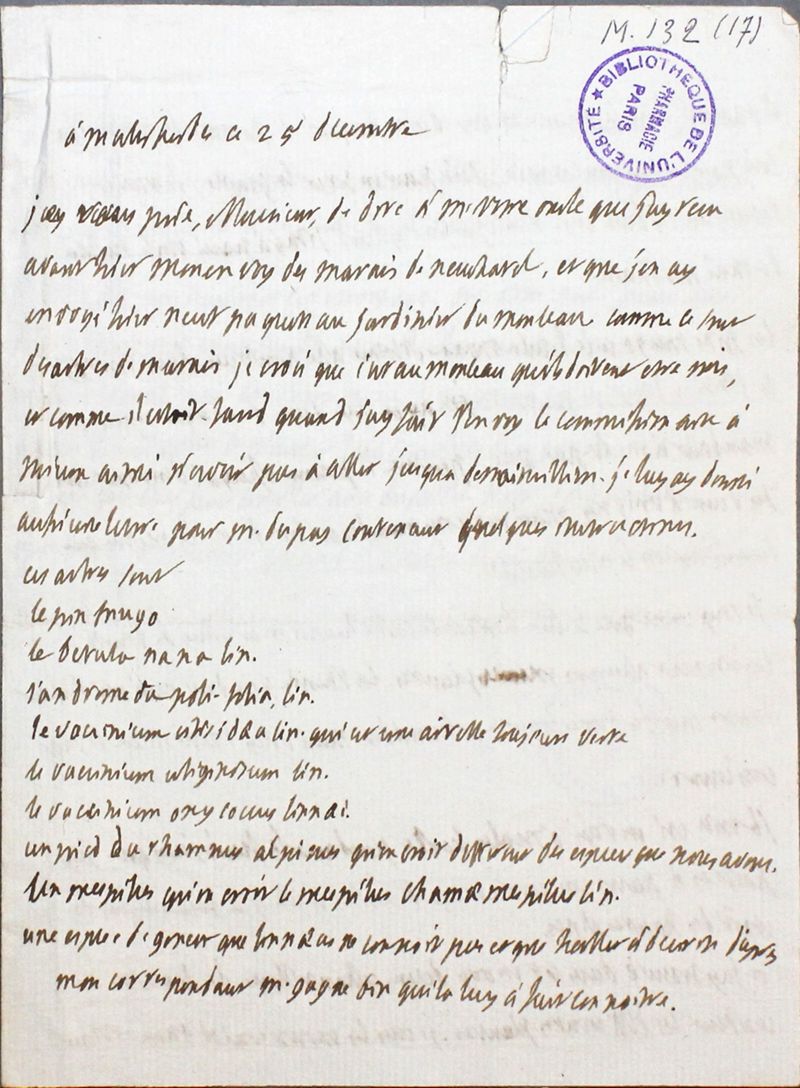 M. 132 (17)
BIBLIOTHEQUE DE L'UNIVERSITÉ
PHARMACIE
PARIS
à malesherbes ce 25 decembre
je vous prie, Monsieur, de dire à mr. que j'ay recu
avant hier mon envoy des marais de neuchatel, et que j'en ay
envoyé hier neuf paquets au jardinier du monceau comme ce sont
des arbres de marais je croi que c'est au monceau qu'ils doivent etre mis,
et comme il etoit tard quand j'ay fait l'envoy le commissionnaire a
mieux aimé n'avoir pas à aller jusqu'a je luy ay donné
aussi une lettre pour m. dupas contenant quelques instructions.
ces arbres sont
le pin mugo
le betula nana lin.
l'andromeda poli-folia, lin.
le vaccinium vitis idæa lin. qui est une airelle toujours verte
le vaccinium uliginosum lin.
le vaccinium oxycoccus linnæi.
un pied du rhamnus alpinus qu'on croit different des especes que nous avons.
un mespilus qu'on croit le mespilus chamæmespilus lin.
une espece de que linnæus ne connoit pas et que haller a decrite d'apres
mon correspondant m. gagnebin qui la luy a fait connoitre.